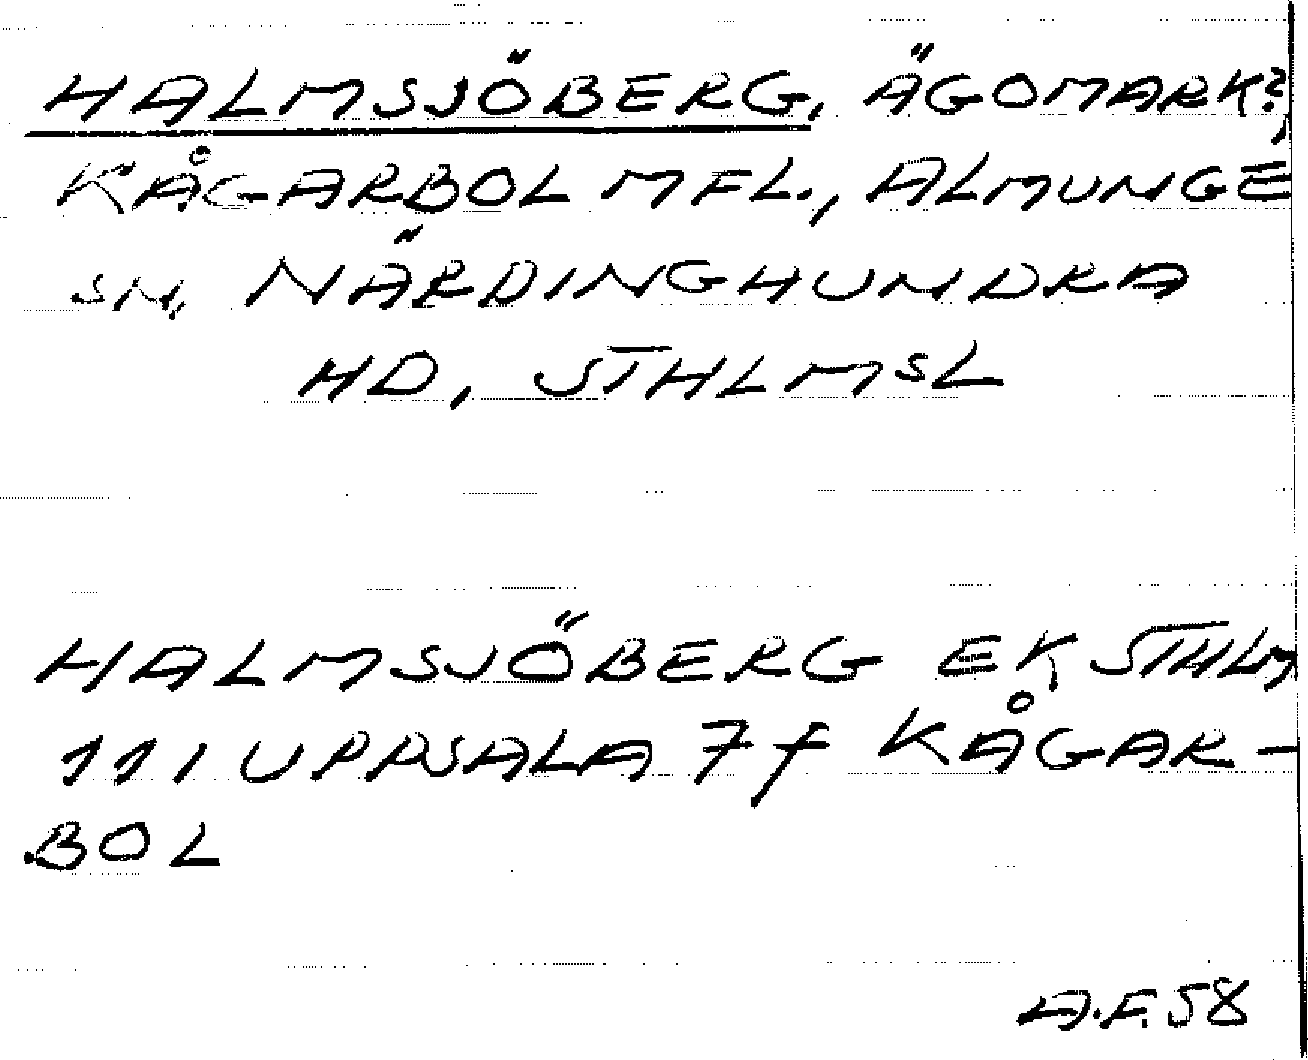 HALMSJÖBERG, ÄGOMARK?,
KÅGARBOL MFL., ALMUNGE
SN, NÄRDINGHUNDRA
HD, STHLMSL
HALMSJÖBERG EK STHLM
111 UPPSALA 7f KÅGAR-
BOL
A.F. 58